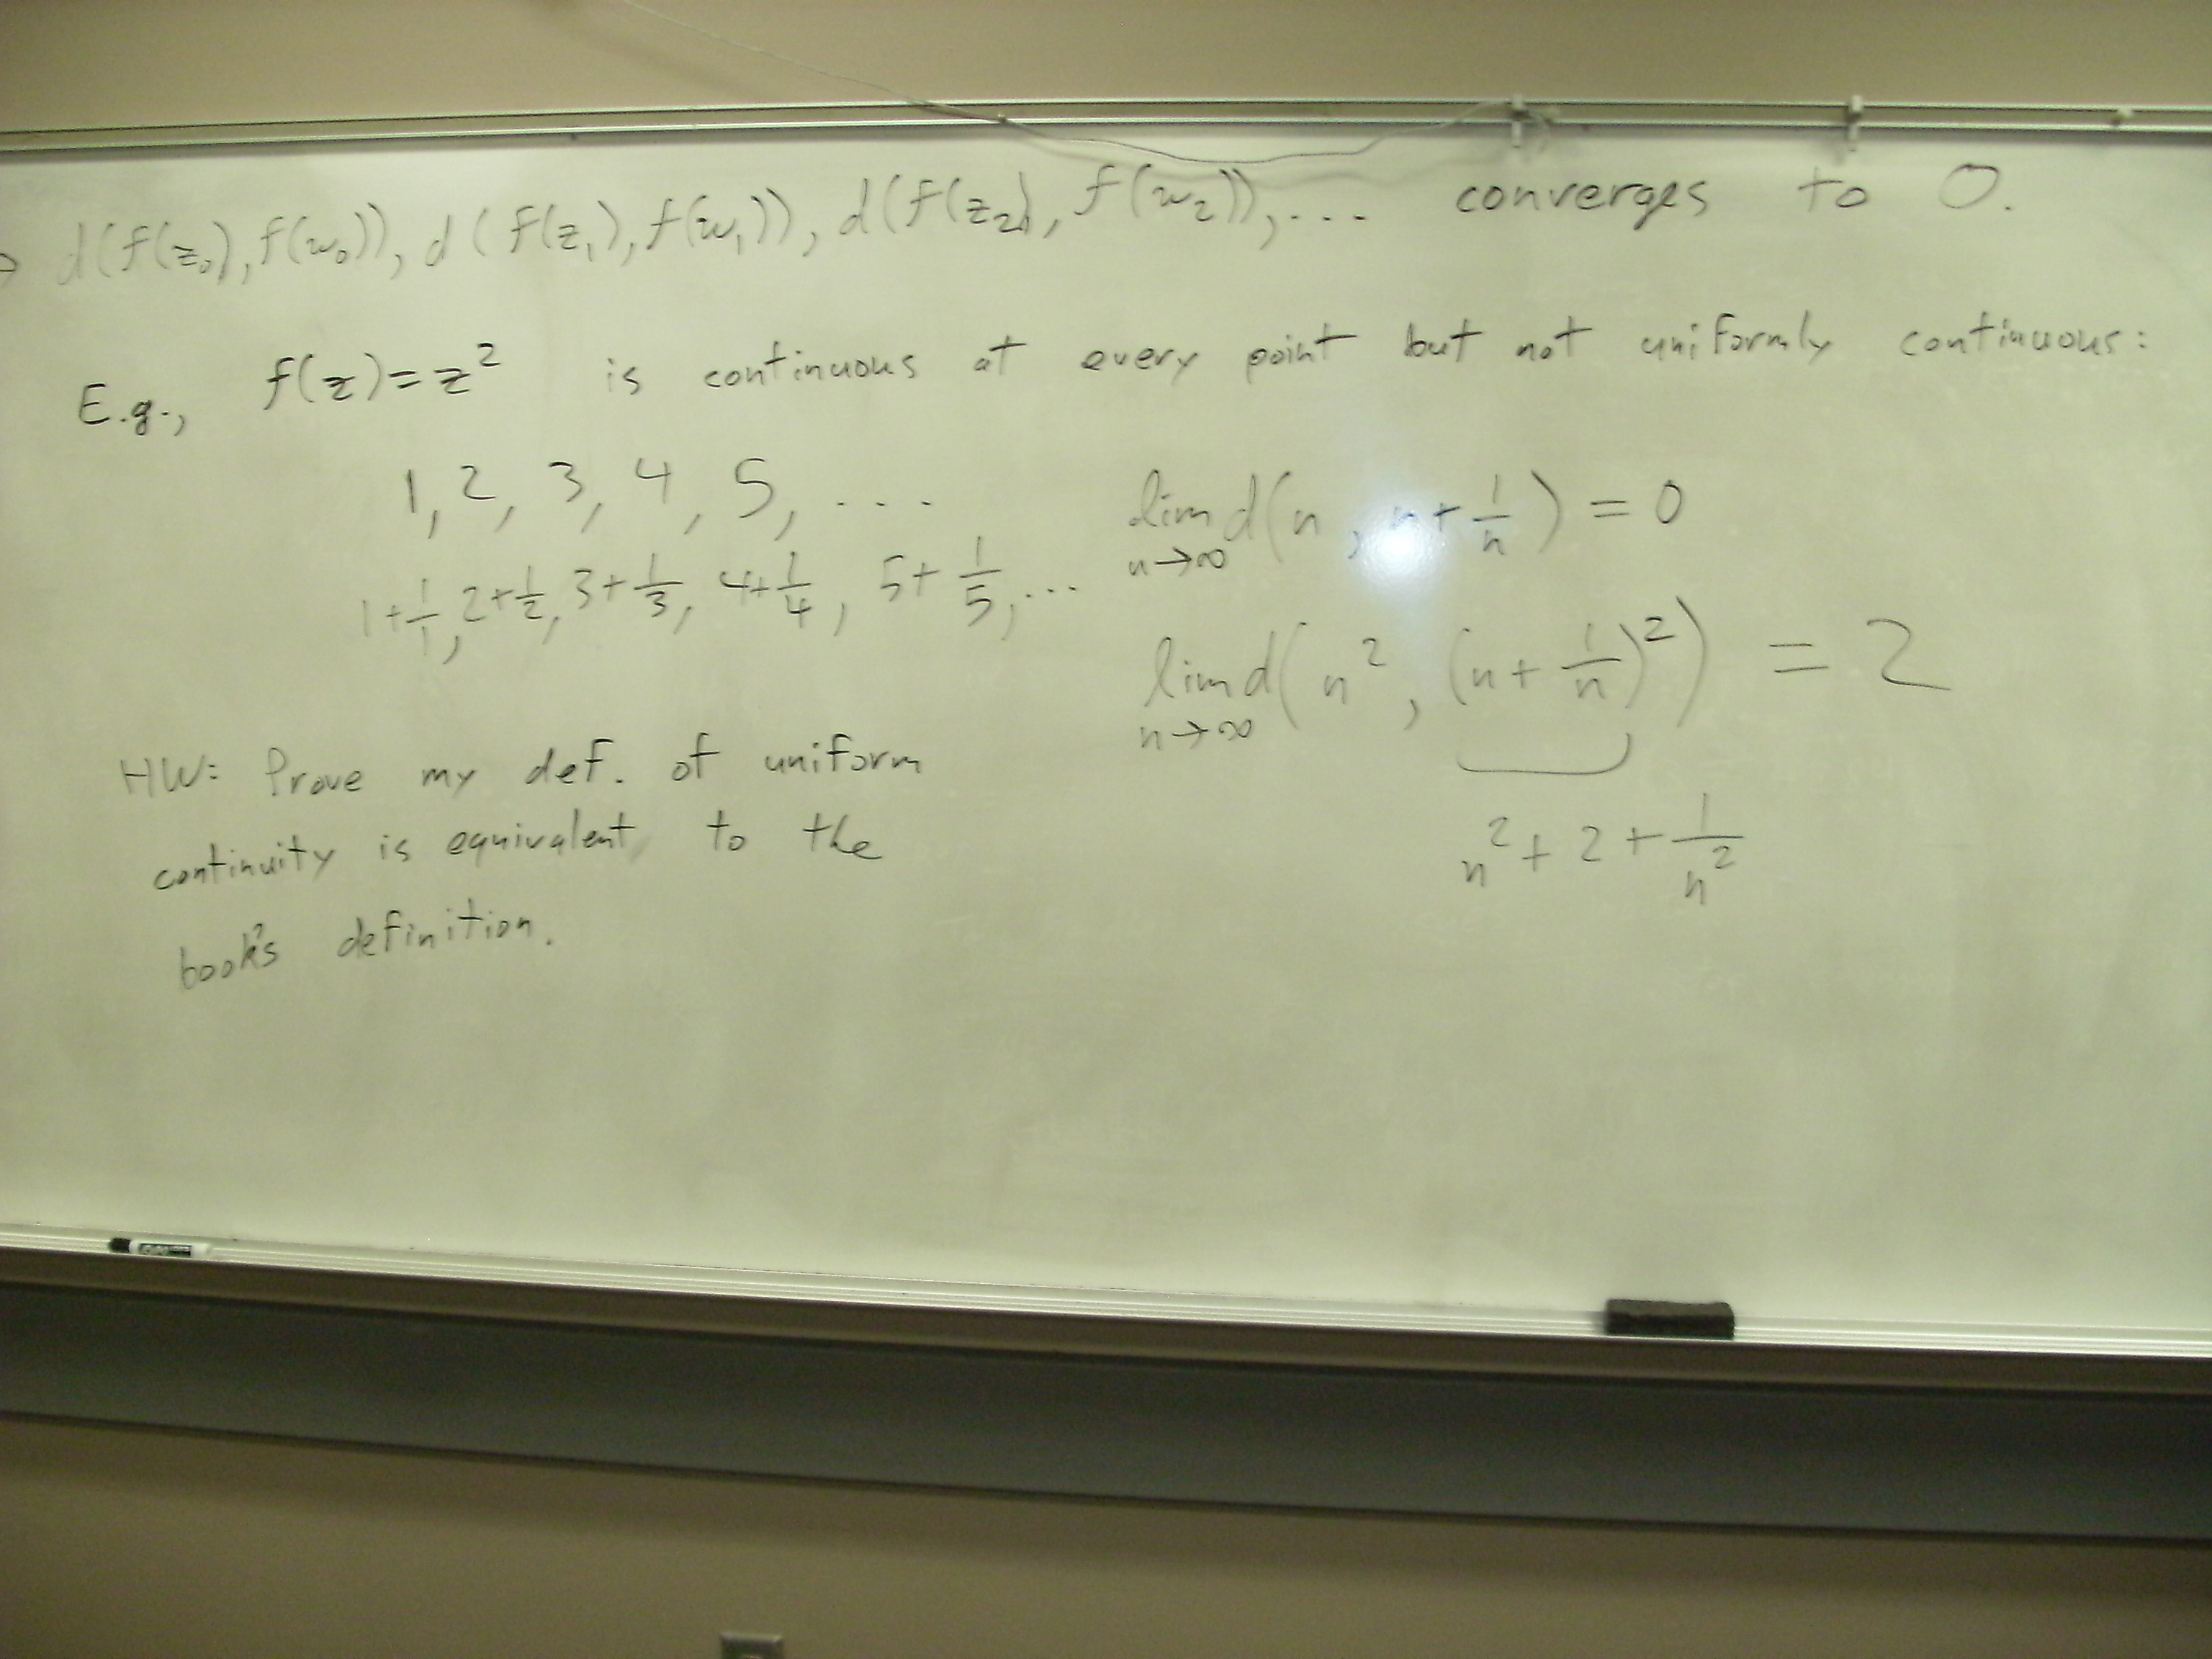 d(f(z₀), f(w₀)), d(f(z₁), f(w₁)), d(f(z₂), f(w₂)), ... converges to 0.
E.g., f(z)=z² is continuous at every point but not uniformly continuous:
1, 2, 3, 4, 5, ...
1+1/1, 2+1/2, 3+1/3, 4+1/4, 5+1/5, ...
lim n→∞ d(n, n+1/n) = 0
lim n→∞ d(n², (n+1/n)²) = 2
n²+2+1/n²
HW: Prove my def. of uniform
continuity is equivalent to the
book's definition.